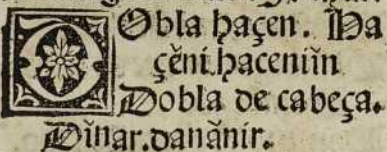 DObla haçen. Ha
çẽni.haceniĩn
Dobla de cabeça.
Dĩnar.danãnir.